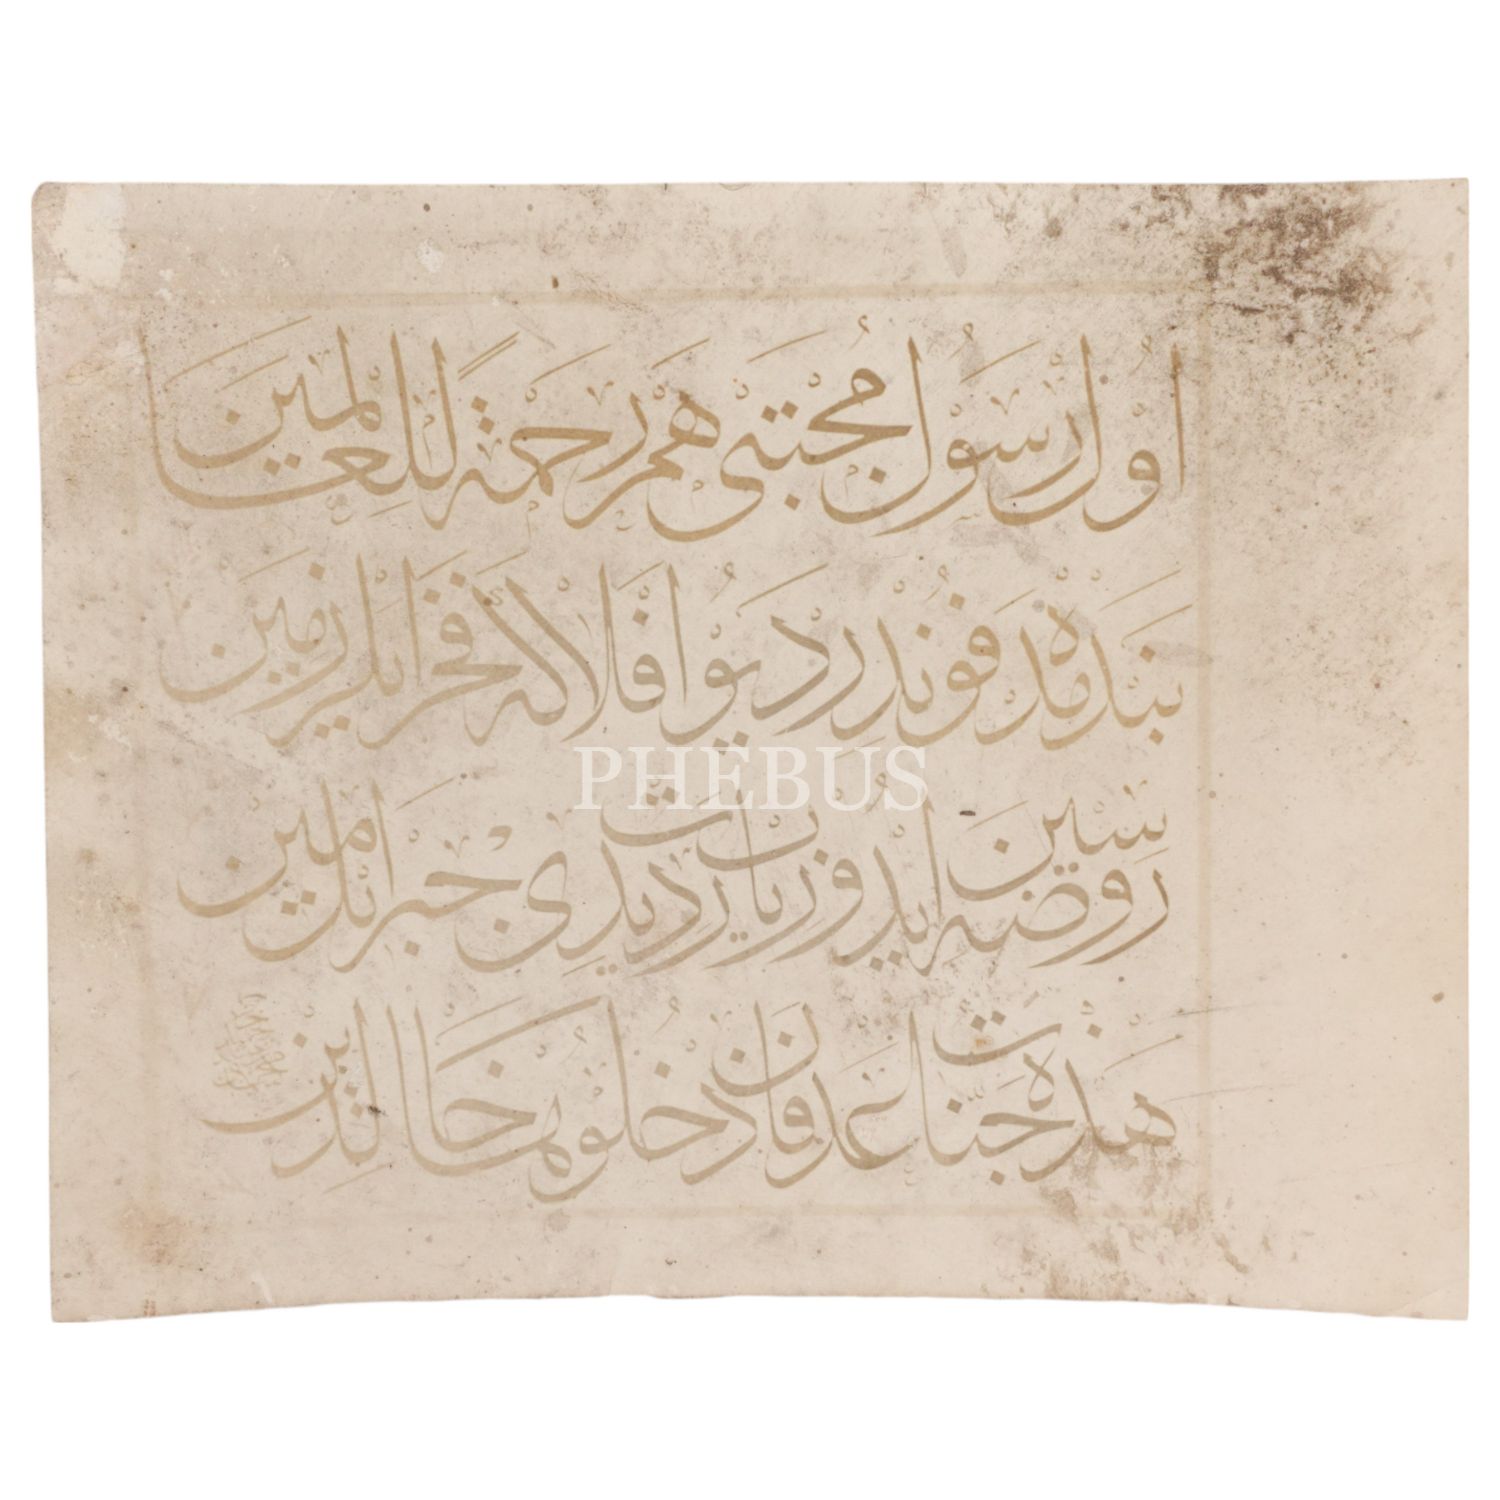 اول رسول مجتبی هم رحمة للعالمین
بنده مدفوندر دیو افلاکه فخر ایلر زمین
روضه سین ایدوب زیارت دیدی جبرائل امین
هذه جنات عدن فادخلوها خالدین
PHEBUS